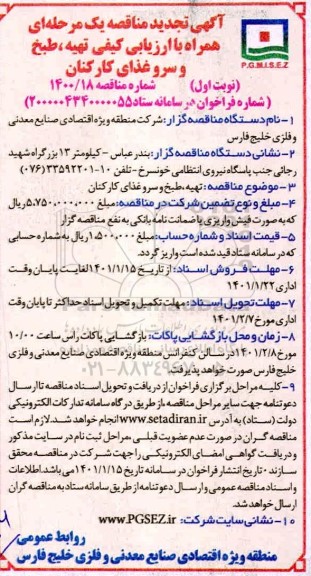 آگهی تجدید مناقصه یک مرحله‌ای
همراه با ارزیابی کیفی تهیه، طبخ
و سرو غذای کارکنان
P.G.M.I.S.E.Z
(نوبت اول) شماره مناقصه ۱۴۰۰/۱۸
(شماره فراخوان در سامانه ستاد ۲۰۰۰۰۰۴۳۴۰۰۰۰۰۵۵)
۱- نام دستگاه مناقصه گزار: شرکت منطقه ویژه اقتصادی صنایع معدنی
و فلزی خلیج فارس
۲- نشانی دستگاه مناقصه گزار: بندرعباس - کیلومتر ۱۳ بزرگراه شهید
رجائی جنب پاسگاه نیروی انتظامی خونسرخ - تلفن ۱۰-۳۳۵۹۲۲۰۱ (۰۷۶)
۳- موضوع مناقصه: تهیه، طبخ و سرو غذای کارکنان
۴- مبلغ و نوع تضمین شرکت در مناقصه: مبلغ ۵,۷۵۰,۰۰۰,۰۰۰ ریال
که به صورت فیش واریزی یا ضمانت نامه بانکی به نفع مناقصه گزار
۵- قیمت اسناد و شماره حساب: مبلغ ۱,۵۰۰,۰۰۰ ریال به شماره حسابی
که در سامانه ستاد قید شده است واریز گردد.
۶- مهلت فروش اسناد: از تاریخ ۱۴۰۱/۱/۱۵ لغایت پایان وقت
اداری ۱۴۰۱/۱/۲۲
۷- مهلت تحویل اسناد: مهلت تکمیل و تحویل اسناد حداکثر تا پایان وقت
اداری مورخ ۱۴۰۱/۲/۷
۸- زمان و محل بازگشایی پاکات: بازگشایی پاکات راس ساعت ۱۰/۰۰
مورخ ۱۴۰۱/۲/۸ در سالن کنفرانس منطقه ویژه اقتصادی صنایع معدنی و فلزی
خلیج فارس صورت خواهد پذیرفت.
۹- کلیه مراحل برگزاری فراخوان از دریافت و تحویل اسناد مناقصه تا ارسال
دعوتنامه جهت سایر مراحل مناقصه از طریق درگاه سامانه تدارکات الکترونیکی
دولت (ستاد) به آدرس www.setadiran.ir انجام خواهد شد. لازم است
مناقصه گران در صورت عدم عضویت قبلی، مراحل ثبت نام در سایت مذکور
و دریافت گواهی امضای الکترونیکی را جهت شرکت در مناقصه محقق
سازند. تاریخ انتشار فراخوان در سامانه تاریخ ۱۴۰۱/۱/۱۵ می باشد. اطلاعات
و اسناد مناقصه عمومی و ارسال دعوتنامه از طریق سامانه ستاد به مناقصه گران
ارسال خواهد شد.
۱۰- نشانی سایت شرکت: www.PGSEZ.ir
روابط عمومی
منطقه ویژه اقتصادی صنایع معدنی و فلزی خلیج فارس